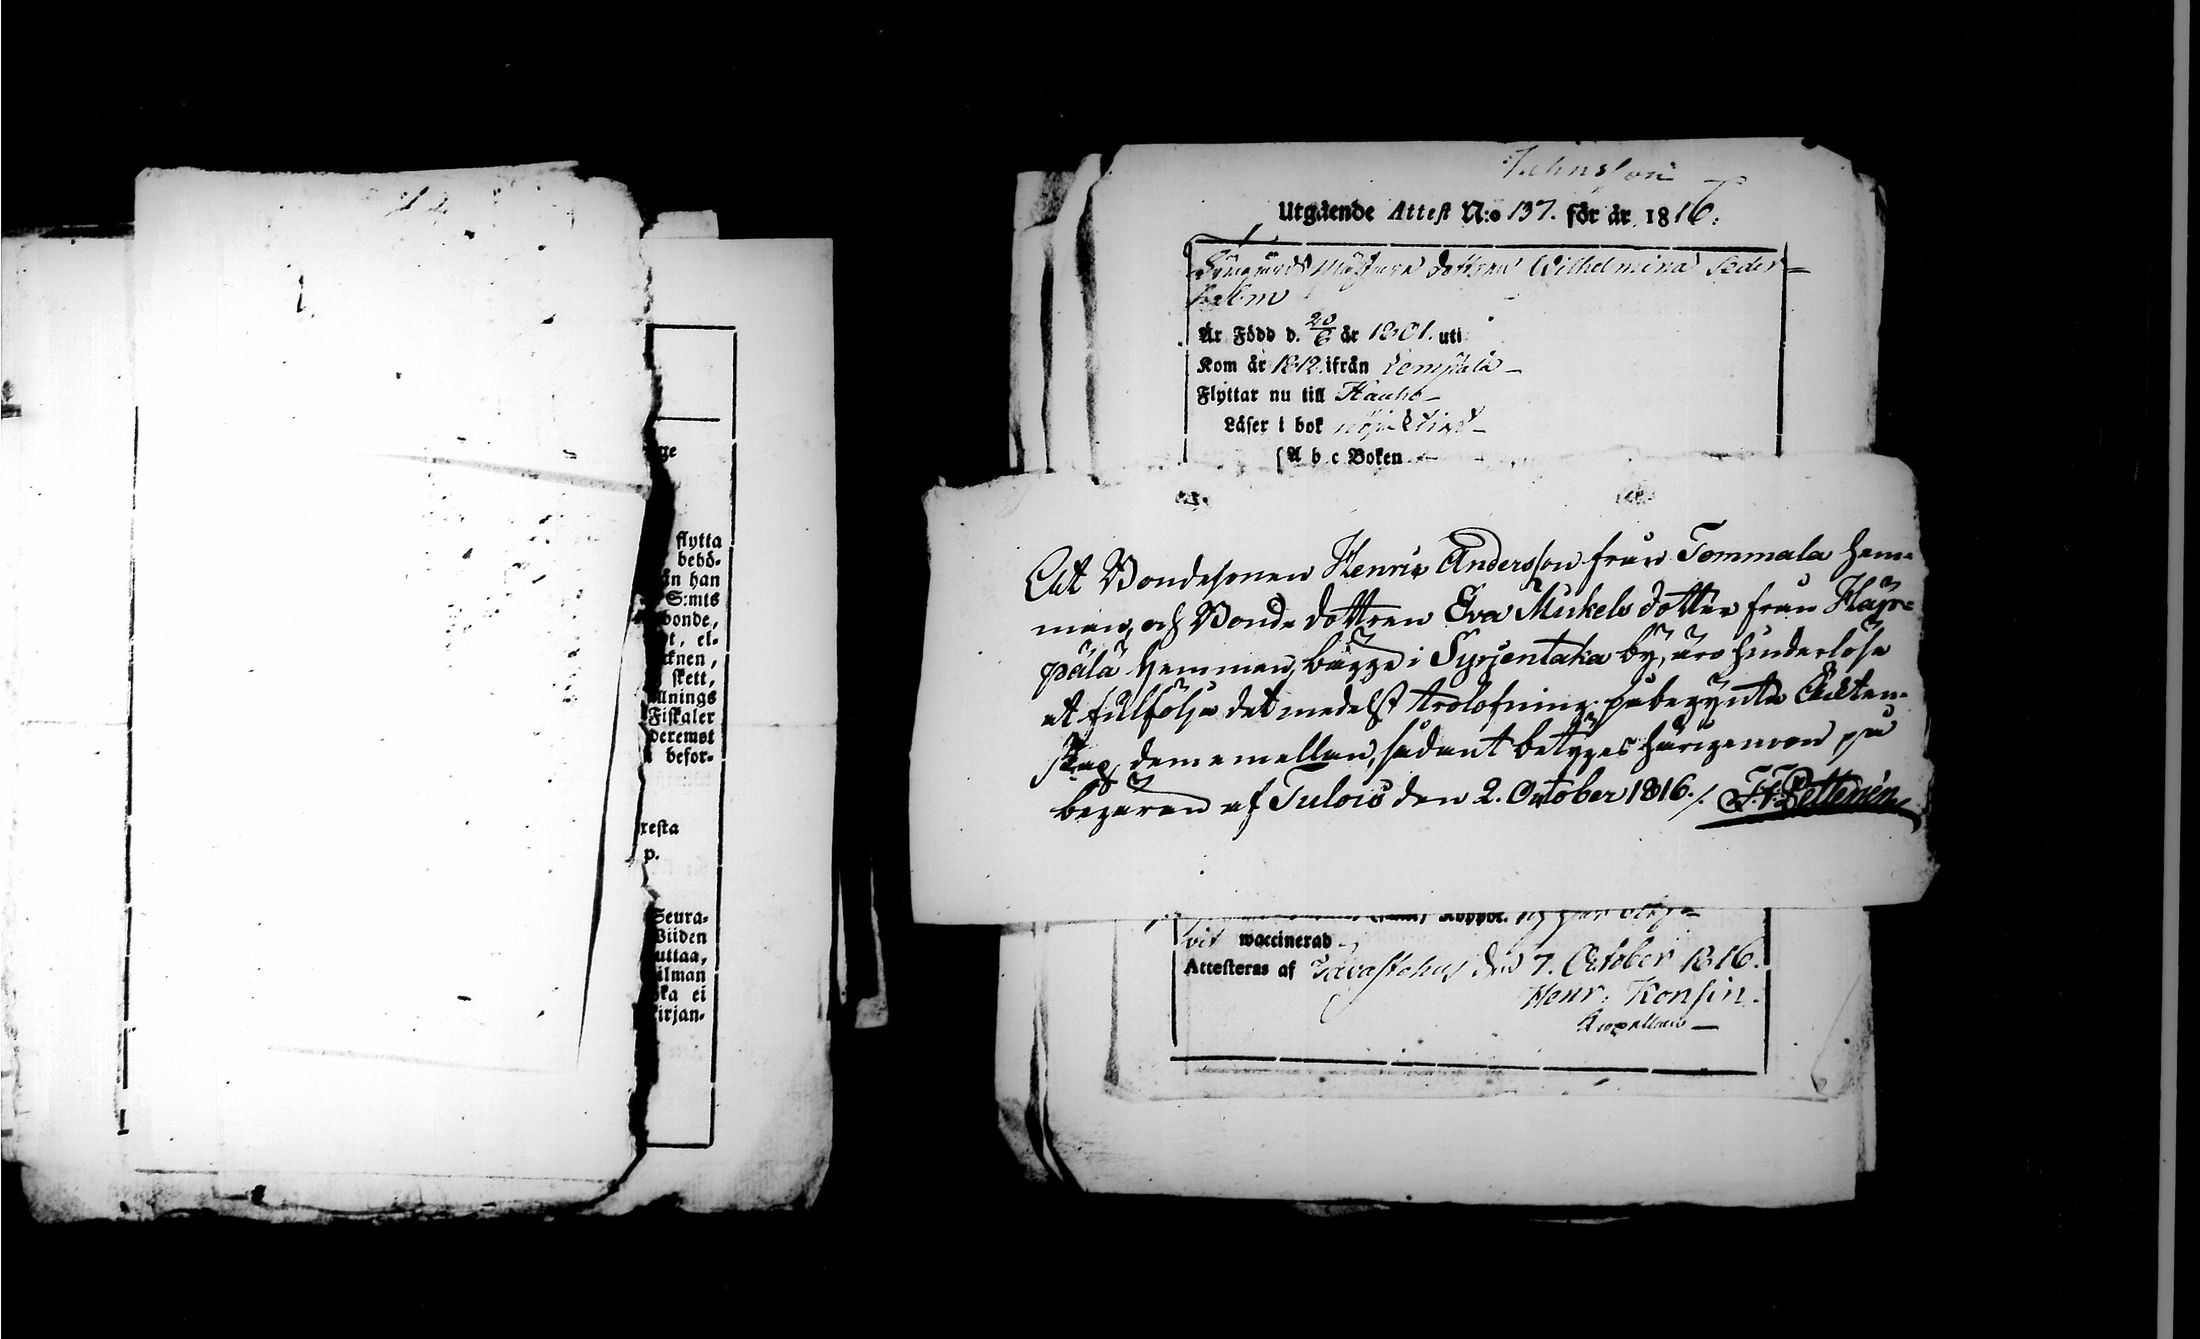 ge
flytta
behö-
än han
S:mts
bonde,
t, el-
knen,
skett,
llnings
Fiskaler
deremot
befor-
resta
p.
Seura-
Viiden
uttaa,
ilman
ka ei
irjan-
Utgående Attest N:o 137. för år 1816.
dottren Wilhelmina Seder=
holm
Är Född d. 20/6 år 1801. uti
Kom år 1812. ifrån Lempälä
Flyttar nu till Hauho
Läser i bok
A b c Boken
Att Bondesonen Henric Andersson från Tommala hem-
man, och Bonde dottren Eva Mickels dotter från Häp-
pälä hemman, bägge i Syrjentaka by, äro hinderlöse
at fulfölja det medelst trolofning påbegynta Ächten-
skap dem emellan, sådant betyges härigenom på
begäran af Tulois den 2. October 1816./. F. H. Bettewén
Koppor.
vit waccinerad
Attesteras af Tavastehus den 7. October 1816.
Henr. Konsin.
Capellan